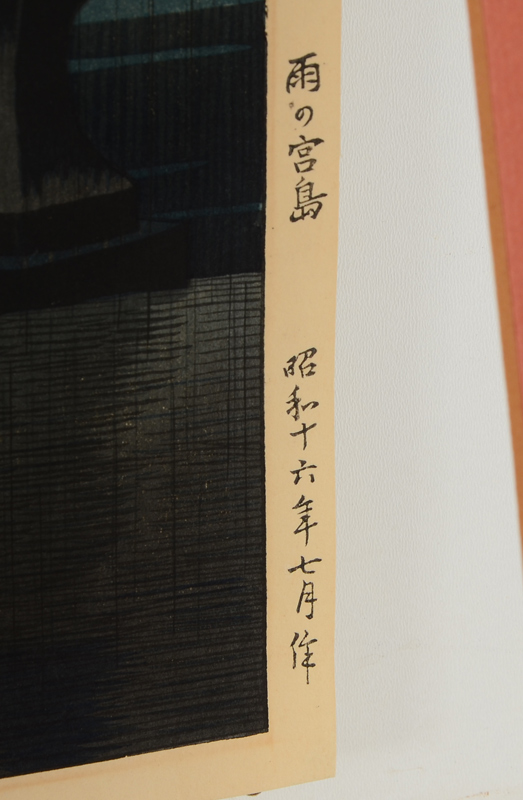 雨の宮島
昭和十六年七月作